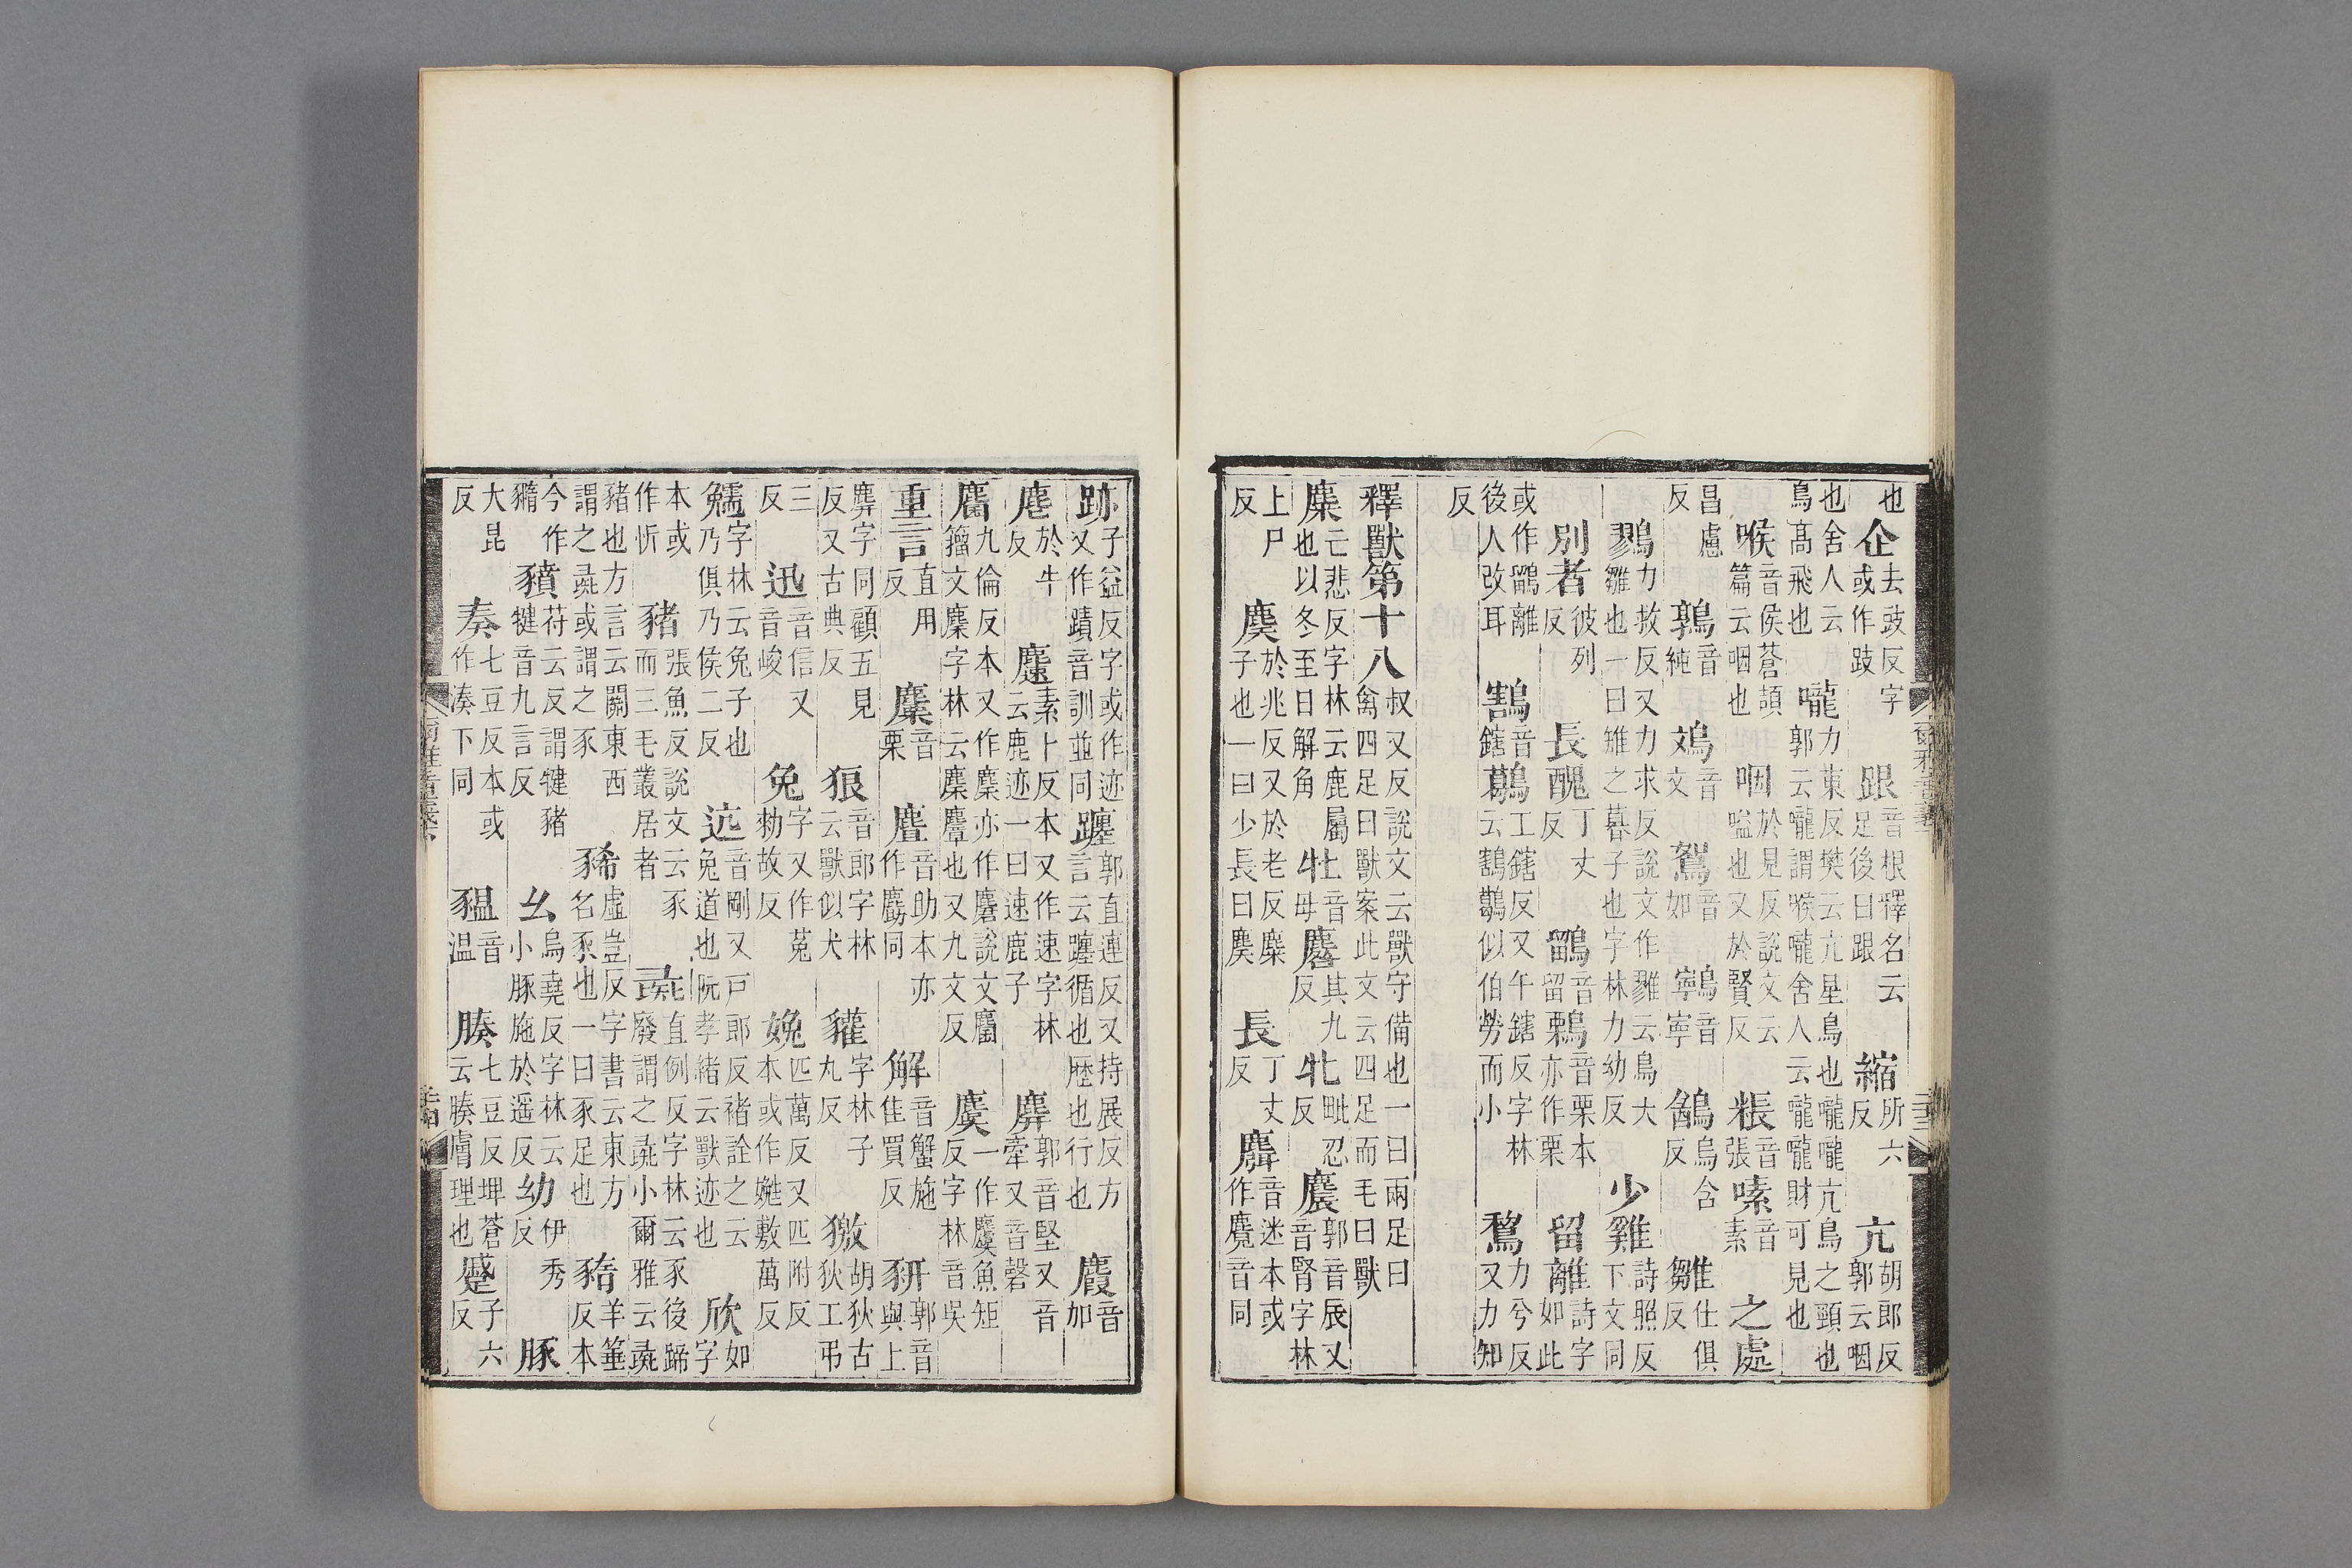 也企去豉反字或作跂 跟音根釋名云足後曰跟 縮所六反 亢胡郎反郭云咽
也舍人云鳥高飛也 嚨力東反樊云亢星鳥也嚨嚨亢鳥之頸也郭云嚨謂喉嚨舍人云嚨嚨財可見也
喉音侯蒼頡篇云咽也 咽於見反說文云嗌也又於賢反 粻音張 嗉音素 之處
昌慮反 鶉音純 鳼音文 鴽音如 鸋音寧 鶕烏含反 雛仕俱反
鷚力救反又力求反說文作雡云鳥大雛也一曰雉之暮子也字林力幼反 少雞詩照反下文同
別者彼列反 長醜丁丈反 鶹音留 鷅音栗本亦作栗 留離詩字如此
或作鶹離後人改耳 鶷音鎋 鶡工鎋反又午鎋反字林云鶷鶡似伯勞而小 鵹力兮反又力知
反
釋獸第十八 叔又反說文云獸守備也一曰兩足曰禽四足曰獸案此文云四足而毛曰獸
麋亡悲反字林云鹿屬也以冬至日解角 牡音母 麔其九反 牝毗忍反 麎郭音辰又音腎字林
上尸反 於兆反又於老反麋子也一曰少長曰 長丁丈反 麛音迷本或作麑音同
跡子益反字或作迹又作蹟音訓並同 躔郭直連反又持展反方言云躔循也歴也行也 麚音加
麀於牛反 素卜反本又作速字林云鹿迹一曰速鹿子 麉郭音堅又音牽又音磬
麕九倫反本又作麇亦作麏說文麕籀文麇字林云麇麞也又九文反 麌一作麌魚矩反字林音吳
重言直用反 麜音栗 麆音助本亦作同 解音蟹施佳買反 豜郭音與上
麉字同顧五見反又古典反 狼音郎字林云獸似犬 貛字林子丸反 獥胡狄古狄工弔
三反 迅音信又音峻 兔字又作菟勑故反 娩匹萬反又匹附反本或作嬎敷萬反
字林云兔子也乃俱乃侯二反 迒音剛又戸郎反禇詮之云兔道也阮孝緒云獸迹也 欣字如
本或作忻 豬張魚反說文云豕而三毛叢居者 彘直例反字林云豕後蹄廢謂之彘小爾雅云彘
豬也方言云關東西謂之彘或謂之豕 豨虛豈反字書云東方名豕也一曰豕足也 羊箠反本
今作䝐 豶苻云反謂犍豬犍音九言反 幺烏堯反字林云小豚施於遥反 幼伊秀反 豚
大昆反 奏七豆反本或作凑下同 豱音温 腠七豆反埤蒼云腠膚理也 蹙子六反